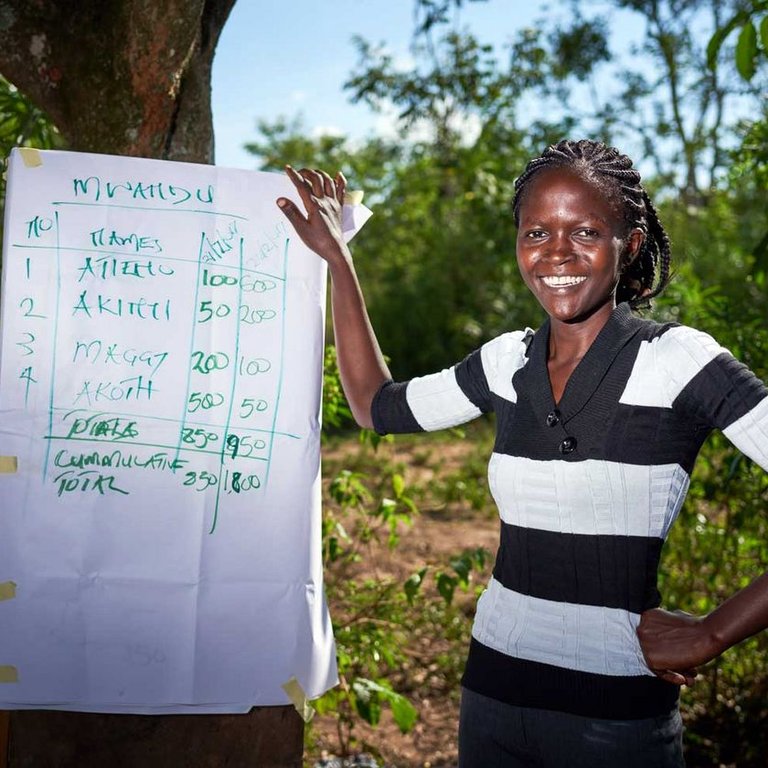 MWANDU
NO NAMES
1 ATIENO 100 600
2 AKINYI 50 200
3 MAGGY 200 100
4 AKOTH 500 50
TOTALS 850 950
CUMMULATIVE 850 1,800
TOTAL